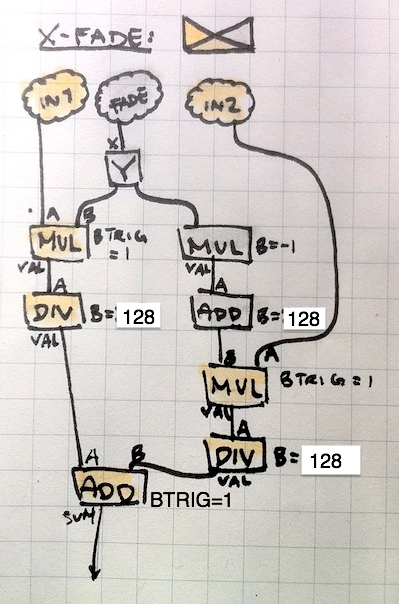 X-FADE:
IN1 FADE IN2
X
Y
A B
MUL BTRIG =1 MUL B=-1
VAL VAL
A A
DIV B= 128 ADD B= 128
VAL
B A
MUL BTRIG=1
VAL
A
DIV B= 128
VAL
A B
ADD BTRIG=1
SUM